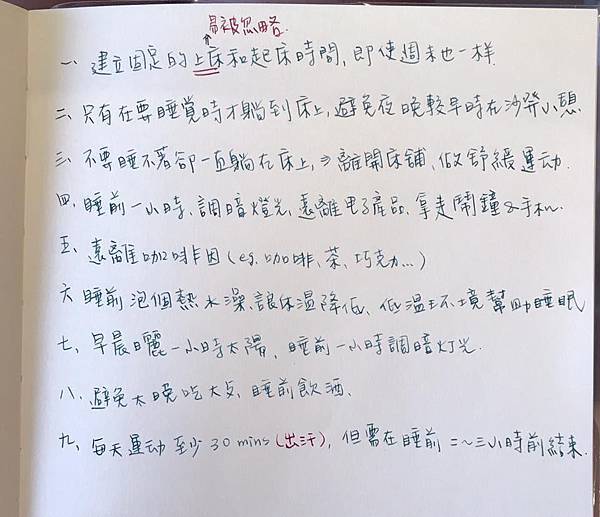 易被忽略.
一、建立固定的上床和起床時間, 即使週末也一樣.
二、只有在要睡覺時才躺到床上, 避免夜晚較早時在沙發小憩
三、不要睡不著卻一直躺在床上, ⇒ 離開床舖、做舒緩運动.
四、睡前一小時、調暗燈光、遠離电子產品、拿走鬧鐘&手机.
五、遠離咖啡因 (eg. 咖啡、茶、巧克力...)
六、睡前泡個熱水澡、讓体温降低、低温环境幫助睡眠
七、早晨曬一小時太陽, 睡前一小時調暗灯光.
八、避免太晚吃大歺、睡前飲酒.
九、每天運动至少 30 mins (出汗), 但需在睡前 二~三小時前結束.